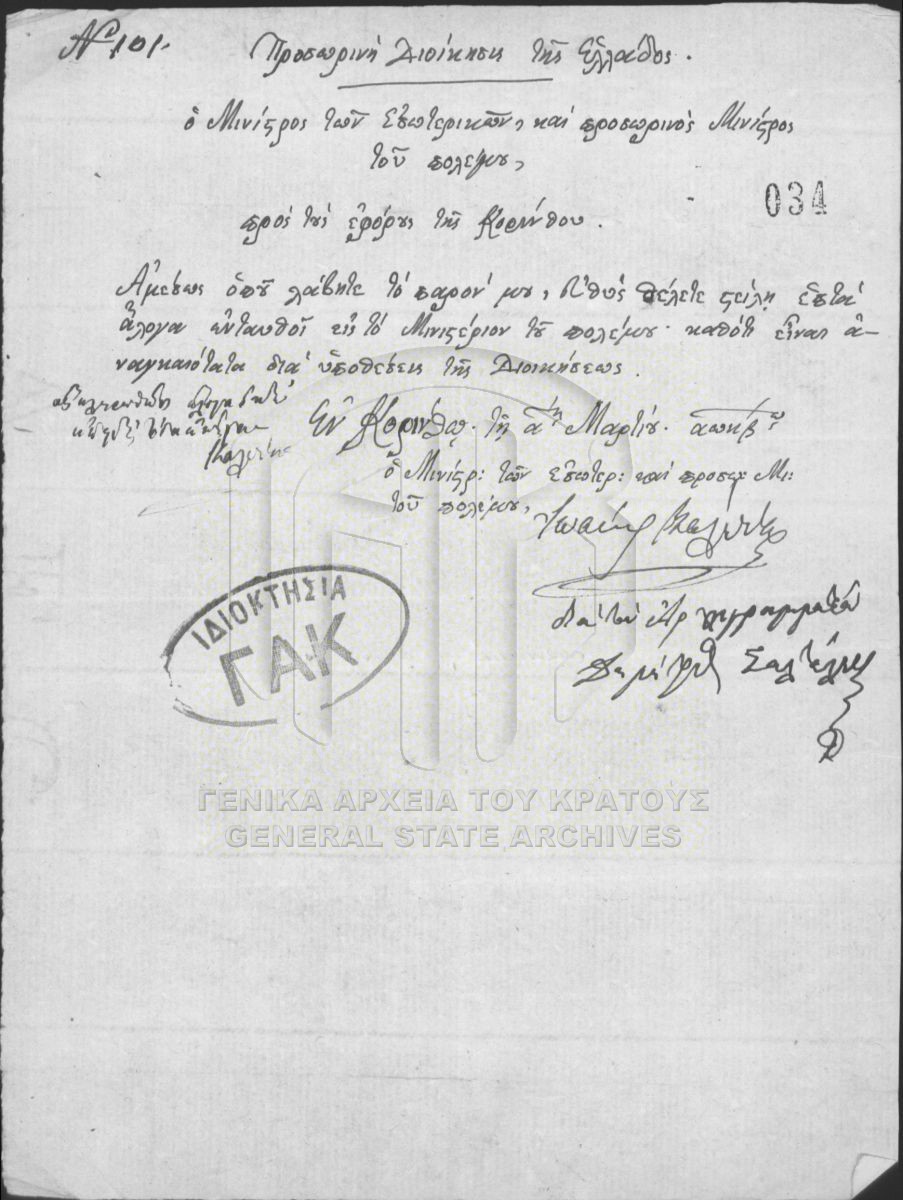 Nº 101.
Προσωρινὴ Διοίκησις τῆς Ἑλλάδος.
ὁ Μινίςρος τῶν Ἐσωτερικῶν, καὶ προσωρινὸς Μινίςρος
τοῦ πολέμου,
034
πρὸς τοὺς ἐφόρους τῆς Κορίνθου.
Ἀμέσως ὁποῦ λάβητε τὸ παρόν μου, εὐθὺς θέλετε ςείλῃ ἑπτὰ
ἄλογα ἐνταυθοῖ εἰς τὸ Μινιςέριον τοῦ πολέμου· καθότι εἶναι ἀ-
ναγκαιότατα διὰ ὑποθέσεις τῆς Διοικήσεως.
Ἐν Κορίνθῳ. τῇ αῃ Μαρτίου. αωκβου
ὁ Μινίςρ: τῶν ἐσωτερ: καὶ προσωρ Μι:
τοῦ πολέμου,
Ἰωάννης Κωλέττης
διὰ τὸν Ἀρ
ΙΔΙΟΚΤΗΣΙΑ
ΓΑΚ
ΓΕΝΙΚΑ ΑΡΧΕΙΑ ΤΟΥ ΚΡΑΤΟΥΣ
GENERAL STATE ARCHIVES